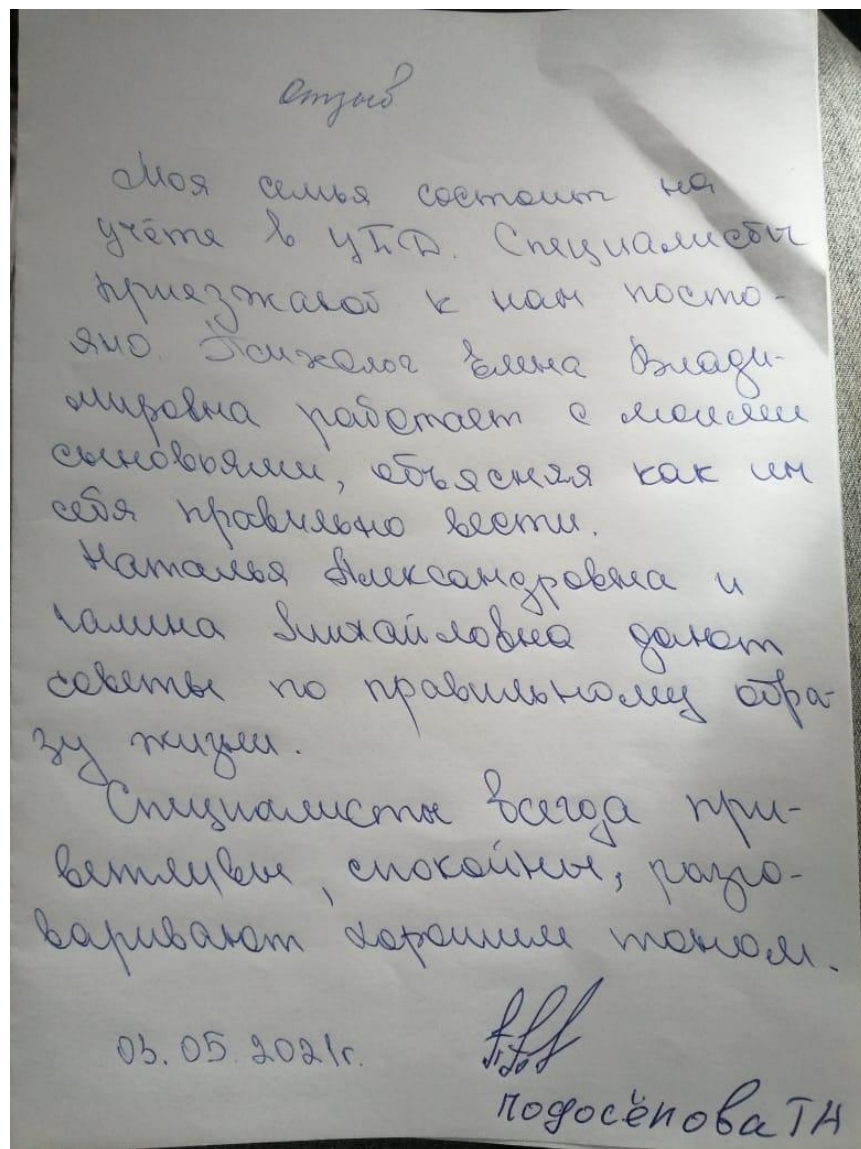 отзыв
Моя семья состоит на
учёте в УПД. Специалисты
приезжают к нам посто-
яно. Психолог Елена Влади-
мировна работает с моими
сыновьями, объясняя как им
себя правильно вести.
Наталья Александровна и
Галина Михайловна дают
советы по правильному обра-
зу жизни.
Специалисты всегда при-
ветливы, спокойны, разго-
варивают хорошим тоном.
03.05.2021г.
Подосёнова ТН